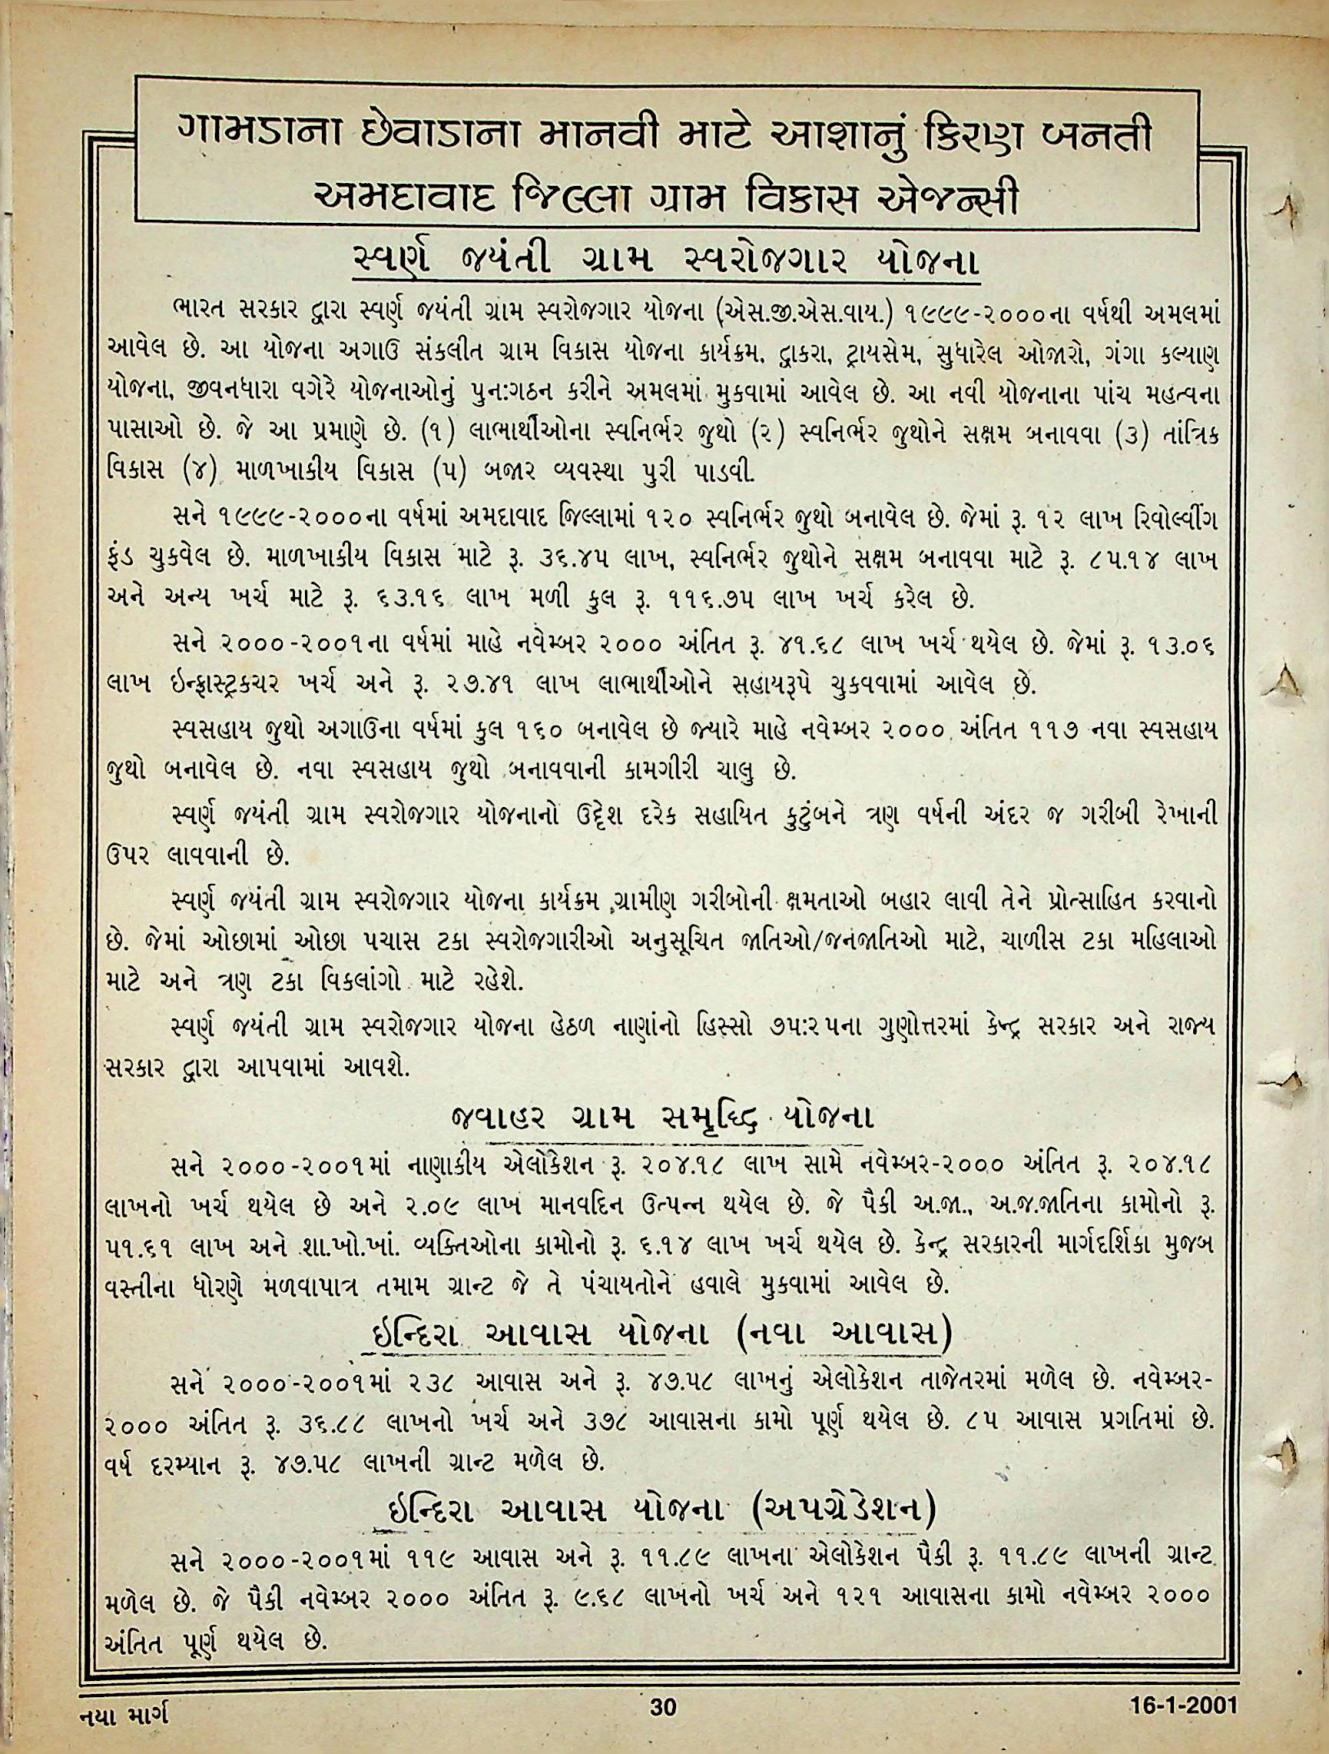 ગામડાના છેવાડાના માનવી માટે આશાનું કિરણ બનતી
અમદાવાદ જિલ્લા ગ્રામ વિકાસ એજન્સી
સ્વર્ણ જયંતી ગ્રામ સ્વરોજગાર યોજના
ભારત સરકાર દ્વારા સ્વર્ણ જયંતી ગ્રામ સ્વરોજગાર યોજના (એસ.જી.એસ.વાય.) ૧૯૯૯-૨૦૦૦ના વર્ષથી અમલમાં
આવેલ છે. આ યોજના અગાઉ સંકલીત ગ્રામ વિકાસ યોજના કાર્યક્રમ, દ્વાકરા, ટ્રાયસેમ, સુધારેલ ઓજારો, ગંગા કલ્યાણ
યોજના, જીવનધારા વગેરે યોજનાઓનું પુનઃગઠન કરીને અમલમાં મુકવામાં આવેલ છે. આ નવી યોજનાના પાંચ મહત્વના
પાસાઓ છે. જે આ પ્રમાણે છે. (૧) લાભાર્થીઓના સ્વનિર્ભર જુથો (૨) સ્વનિર્ભર જુથોને સક્ષમ બનાવવા (૩) તાંત્રિક
વિકાસ (૪) માળખાકીય વિકાસ (૫) બજાર વ્યવસ્થા પુરી પાડવી.
સને ૧૯૯૯-૨૦૦૦ના વર્ષમાં અમદાવાદ જિલ્લામાં ૧૨૦ સ્વનિર્ભર જુથો બનાવેલ છે. જેમાં રૂ. ૧૨ લાખ રિવોલ્વીંગ
ફંડ ચુકવેલ છે. માળખાકીય વિકાસ માટે રૂ. ૩૬.૪૫ લાખ, સ્વનિર્ભર જુથોને સક્ષમ બનાવવા માટે રૂ. ૮૫.૧૪ લાખ
અને અન્ય ખર્ચ માટે રૂ. ૬૩.૧૬ લાખ મળી કુલ રૂ. ૧૧૬.૭૫ લાખ ખર્ચ કરેલ છે.
સને ૨૦૦૦-૨૦૦૧ના વર્ષમાં માહે નવેમ્બર ૨૦૦૦ અંતિત રૂ. ૪૧.૬૮ લાખ ખર્ચ થયેલ છે. જેમાં રૂ. ૧૩.૦૬
લાખ ઇન્ફ્રાસ્ટ્રકચર ખર્ચ અને રૂ. ૨૭.૪૧ લાખ લાભાર્થીઓને સહાયરૂપે ચુકવવામાં આવેલ છે.
સ્વસહાય જુથો અગાઉના વર્ષમાં કુલ ૧૬૦ બનાવેલ છે જ્યારે માહે નવેમ્બર ૨૦૦૦ અંતિત ૧૧૭ નવા સ્વસહાય
જુથો બનાવેલ છે. નવા સ્વસહાય જુથો બનાવવાની કામગીરી ચાલુ છે.
સ્વર્ણ જયંતી ગ્રામ સ્વરોજગાર યોજનાનો ઉદ્દેશ દરેક સહાયિત કુટુંબને ત્રણ વર્ષની અંદર જ ગરીબી રેખાની
ઉપર લાવવાની છે.
સ્વર્ણ જયંતી ગ્રામ સ્વરોજગાર યોજના કાર્યક્રમ ગ્રામીણ ગરીબોની ક્ષમતાઓ બહાર લાવી તેને પ્રોત્સાહિત કરવાનો
છે. જેમાં ઓછામાં ઓછા પચાસ ટકા સ્વરોજગારીઓ અનુસૂચિત જાતિઓ/જનજાતિઓ માટે, ચાળીસ ટકા મહિલાઓ
માટે અને ત્રણ ટકા વિકલાંગો માટે રહેશે.
સ્વર્ણ જયંતી ગ્રામ સ્વરોજગાર યોજના હેઠળ નાણાંનો હિસ્સો ૭૫:૨૫ના ગુણોત્તરમાં કેન્દ્ર સરકાર અને રાજ્ય
સરકાર દ્વારા આપવામાં આવશે.
જવાહર ગ્રામ સમૃદ્ધિ યોજના
સને ૨૦૦૦-૨૦૦૧માં નાણાકીય એલોકેશન રૂ. ૨૦૪.૧૮ લાખ સામે નવેમ્બર-૨૦૦૦ અંતિત રૂ. ૨૦૪.૧૮
લાખનો ખર્ચ થયેલ છે અને ૨.૦૯ લાખ માનવદિન ઉત્પન્ન થયેલ છે. જે પૈકી અ.જા., અ.જ.જાતિના કામોનો રૂ.
૫૧.૬૧ લાખ અને શા.ખો.ખાં. વ્યક્તિઓના કામોનો રૂ. ૬.૧૪ લાખ ખર્ચ થયેલ છે. કેન્દ્ર સરકારની માર્ગદર્શિકા મુજબ
વસ્તીના ધોરણે મળવાપાત્ર તમામ ગ્રાન્ટ જે તે પંચાયતોને હવાલે મુકવામાં આવેલ છે.
ઇન્દિરા આવાસ યોજના (નવા આવાસ)
સને ૨૦૦૦-૨૦૦૧માં ૨૩૮ આવાસ અને રૂ. ૪૭.૫૮ લાખનું એલોકેશન તાજેતરમાં મળેલ છે. નવેમ્બર-
૨૦૦૦ અંતિત રૂ. ૩૬.૮૮ લાખનો ખર્ચ અને ૩૭૮ આવાસના કામો પૂર્ણ થયેલ છે. ૮૫ આવાસ પ્રગતિમાં છે.
વર્ષ દરમ્યાન રૂ. ૪૭.૫૮ લાખની ગ્રાન્ટ મળેલ છે.
ઇન્દિરા આવાસ યોજના (અપગ્રેડેશન)
સને ૨૦૦૦-૨૦૦૧માં ૧૧૯ આવાસ અને રૂ. ૧૧.૮૯ લાખના એલોકેશન પૈકી રૂ. ૧૧.૮૯ લાખની ગ્રાન્ટ
મળેલ છે. જે પૈકી નવેમ્બર ૨૦૦૦ અંતિત રૂ. ૯.૬૮ લાખનો ખર્ચ અને ૧૨૧ આવાસના કામો નવેમ્બર ૨૦૦૦
અંતિત પૂર્ણ થયેલ છે.
નયા માર્ગ
30
16-1-2001